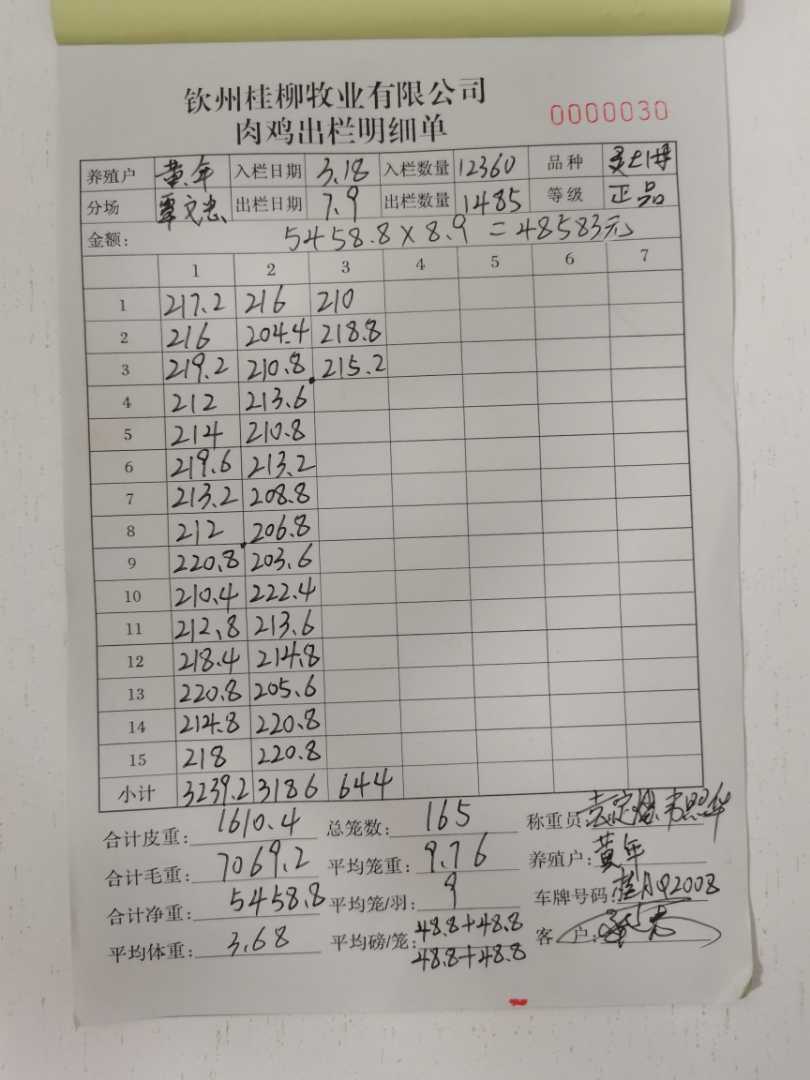 钦州桂柳牧业有限公司
肉鸡出栏明细单
0000030
养殖户 黄年 入栏日期 3.18 入栏数量 12360 品种
分场 覃文忠 出栏日期 7.9 出栏数量 1485 等级 正品
金额: 5458.8×8.9=48583元
1 2 3 4 5 6 7
1 217.2 216 210
2 216 204.4 218.8
3 219.2 210.8 215.2
4 212 213.6
5 214 210.8
6 219.6 213.2
7 213.2 208.8
8 212 206.8
9 220.8 203.6
10 210.4 222.4
11 212.8 213.6
12 218.4 214.8
13 220.8 205.6
14 214.8 220.8
15 218 220.8
小计 3239.2 3186 644
合计皮重: 1610.4 总笼数: 165 称重员:
合计毛重: 7069.2 平均笼重: 9.76 养殖户: 黄年
合计净重: 5458.8 平均笼/羽: 9 车牌号码: 桂AQ2008
平均体重: 3.68 平均磅/笼: 48.8+48.8 客户:
48.8+48.8